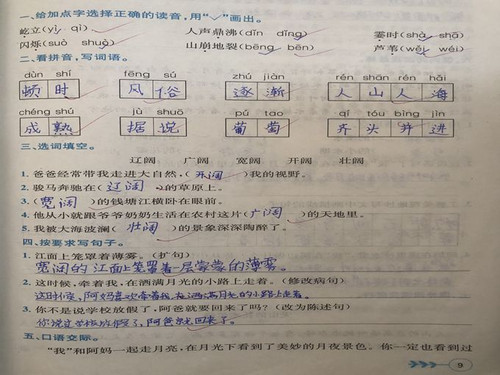 一、给加点字选择正确的读音,用“✓”画出。
屹立(yì qì) 人声鼎沸(dīn dǐng) 霎时(shà shā)
闪烁(suò shuò) 山崩地裂(bēng bēn) 芦苇(wěy wěi)
二、看拼音,写词语。
dùn shí fēng sú zhú jiàn rén shān rén hǎi
顿时 风俗 逐渐 人山人海
chéng shú jù shuō pú tao qí tóu bìng jìn
成熟 据说 葡萄 齐头并进
三、选词填空。
辽阔 广阔 宽阔 开阔 壮阔
1. 爸爸经常带我走进大自然,(开阔)我的视野。
2. 骏马奔驰在(辽阔)的草原上。
3.(宽阔)的钱塘江横卧在眼前。
4. 他从小就跟爷爷奶奶生活在农村这片(广阔)的天地里。
5. 我被大海波澜(壮阔)的景象深深陶醉了。
四、按要求写句子。
1. 江面上笼罩着薄雾。(扩句)
宽阔的江面上笼罩着一层蒙蒙的薄雾。
2. 这时候,牵着我,在洒满月光的小路上走着。(修改病句)
这时候,阿妈喜欢牵着我,在洒满月光的小路上走着。
3. 你不是说学校放假了,阿爸就要回来了吗?(改为陈述句)
你说过学校放假了,阿爸就回来了。
五、口语交际。
“我”和阿妈一起走月亮,在月光下看到了美妙的月夜景色。你一定也看到过
9